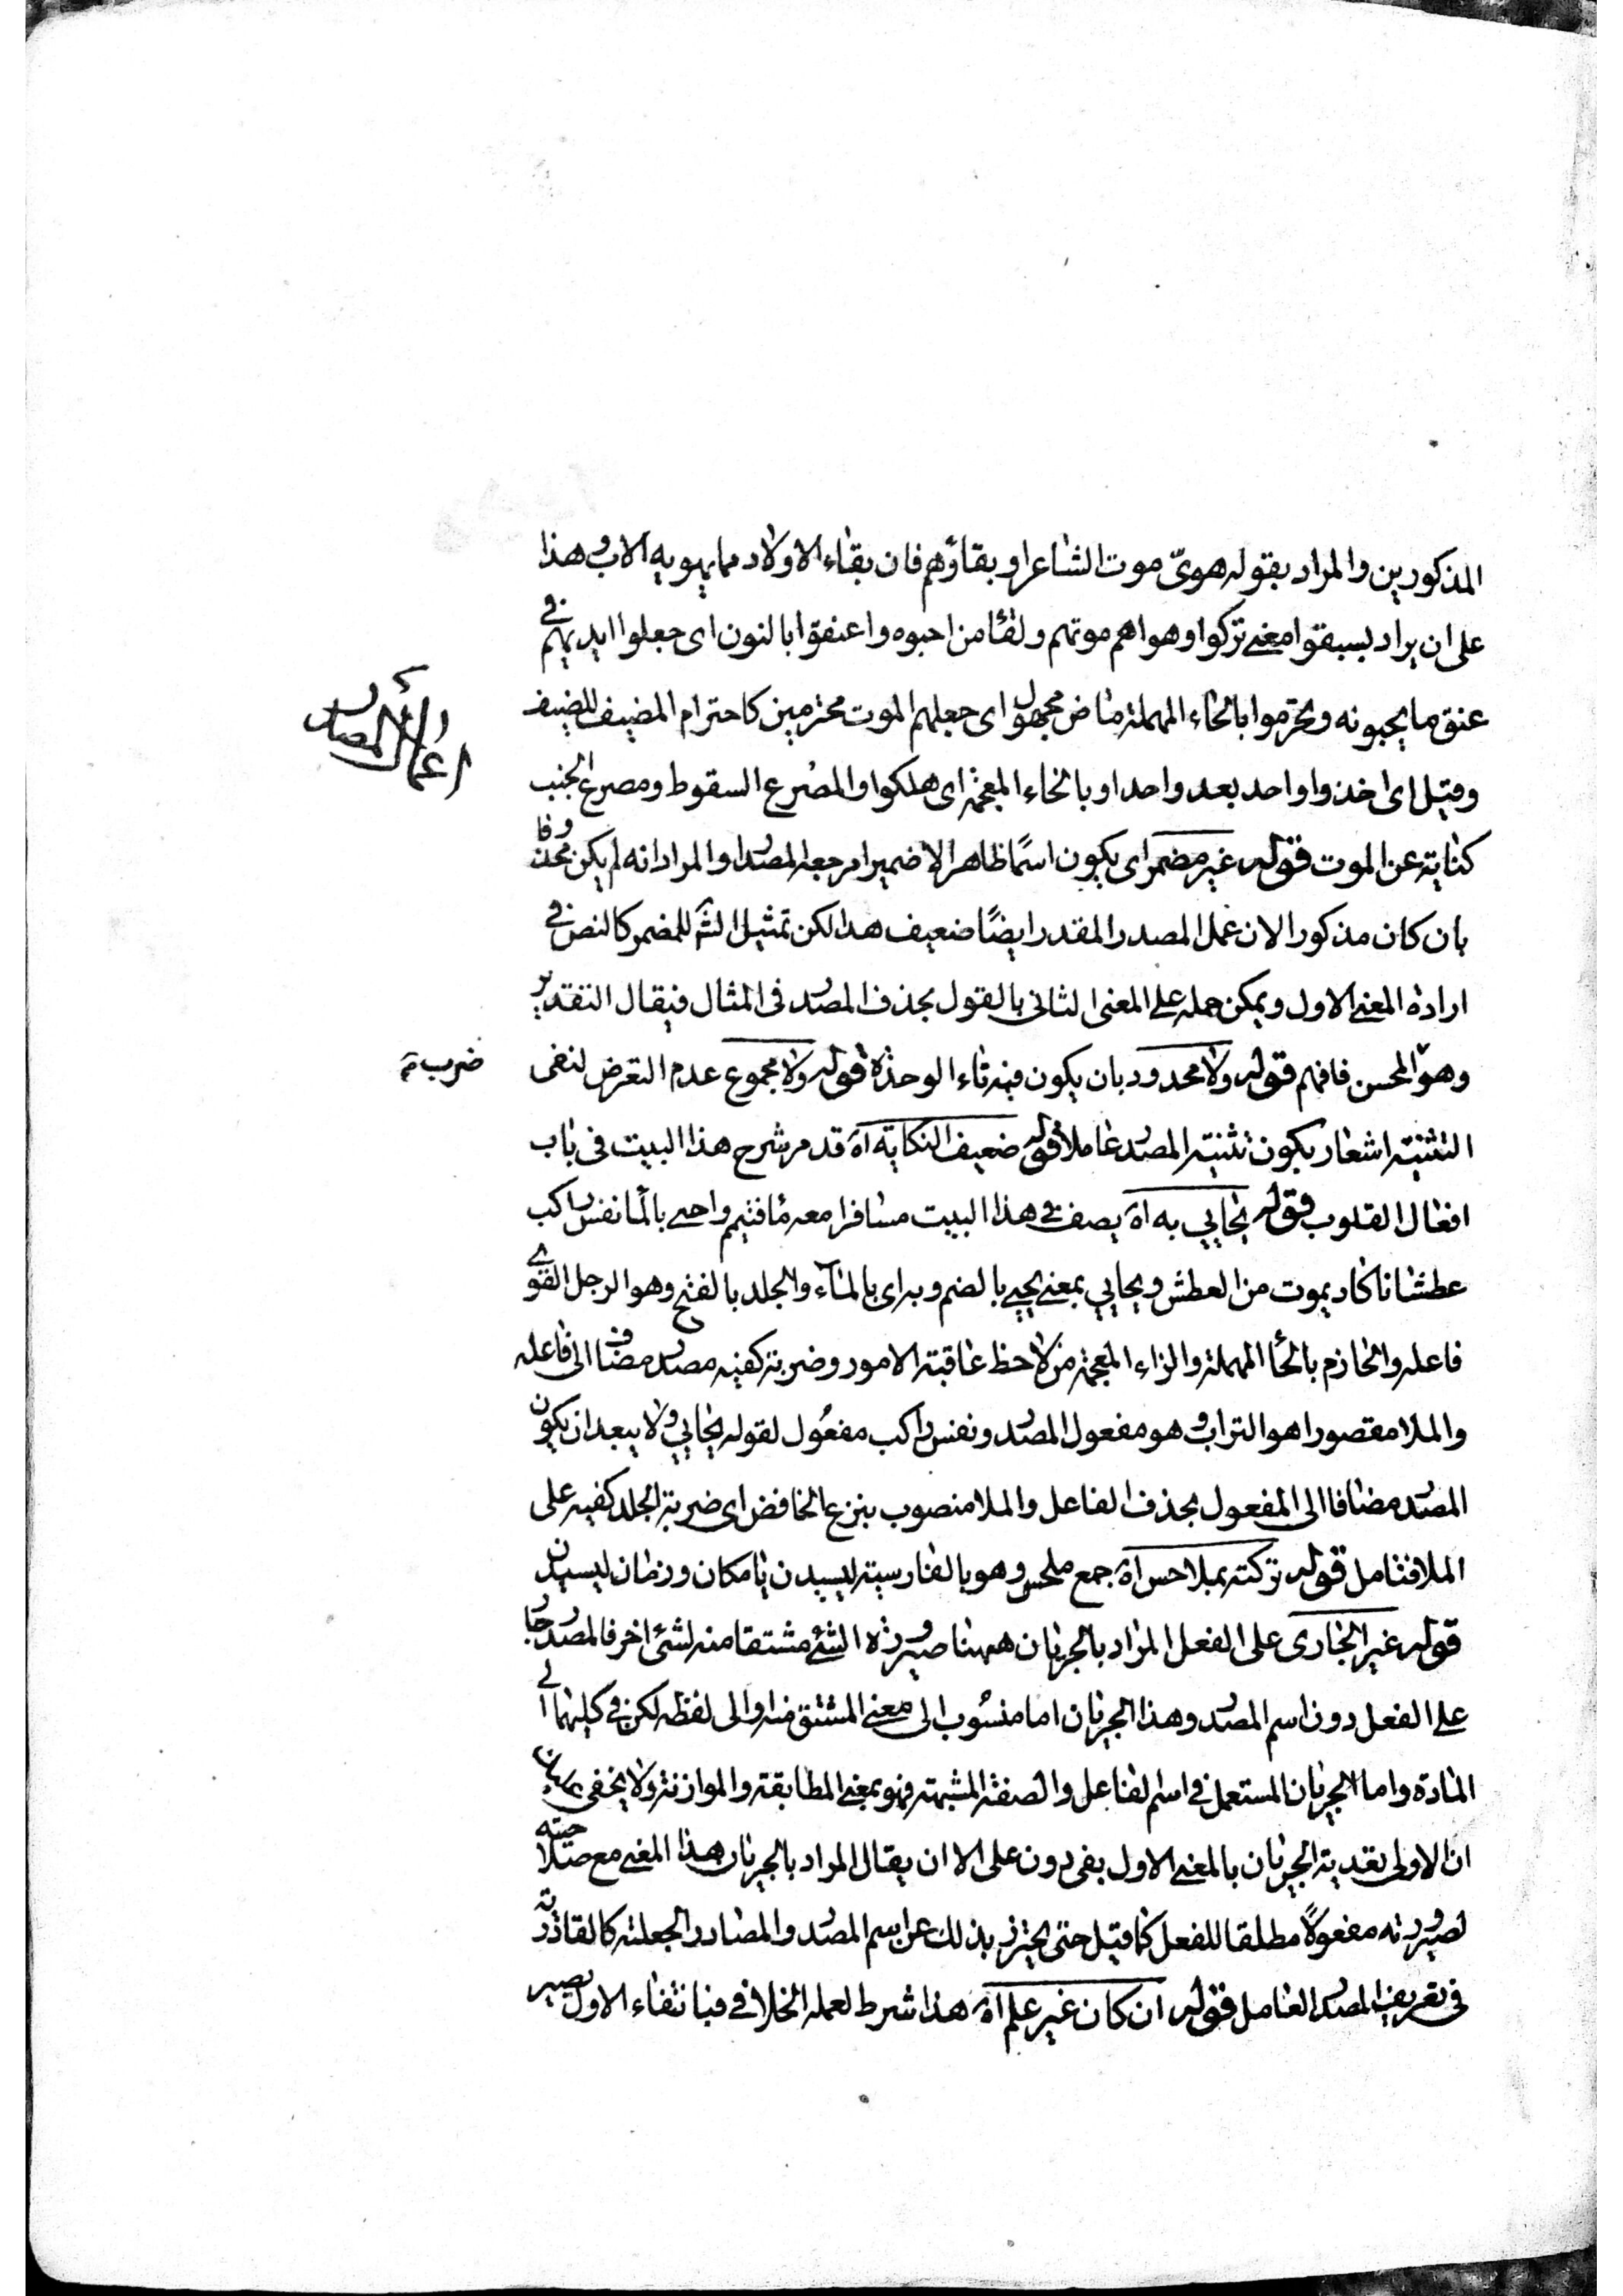 المذكورين والمراد بقوله هوىّ موت الشاعر او بقاؤهم فان بقاء الاولاد مما يهويه الاب وهذا
على ان يراد بسبقوا معنى تركوا وهواهم موتهم ولقأ من احبوه واعنقوا بالنون اى جعلوا ايديهم فى
عنق ما يحبونه وتخرموا بالحاء المهملة ماض مجهول اى جعلهم الموت محترمين كاحترام المضيف للضيف
وقيل اى اخذوا واحد بعد واحد او بالخاء المعجمة اى هلكوا والمصرع السقوط ومصرع الجنب
اعمال المصدر
كناية عن الموت قوله غير مضمر اى يكون اسمًا ظاهرا لا ضميرا مرجعه المصدر والمراد انه لم يكن محذوفا
بان كان مذكورا لان عمل المصدر المقدر ايضًا ضعيف هذا لكن تمثيل الشم للمضمر كالنص فى
ارادة المعنى الاول ويمكن حمله على المعنى الثانى بالقول بحذف المصدر فى المثال فيقال التقدير
وهو المحسن فافهم قوله ولا محدود بان يكون فيه تاء الوحدة قوله ولا مجموع عدم التعرض لنفى
ضرب
التثنية اشعار بكون تثنية المصدر عاملا قوله ضعيف النكاية اه قد مر شرح هذا البيت فى باب
افعال القلوب قوله يحايى به اه يصف فى هذا البيت مسافرا معه ماء فتيمم واحيى بالماء نفس راكب
عطشانا كاد يموت من العطش ويحايى بمعنى يحيى بالضم وبه اى بالماء والجلد بالفتح وهو الرجل القوى
فاعله والحازم بالحأ المهملة والزاء المعجمة من لاحظ عاقبة الامور وضربة كفيه مصدر مضاف الى فاعله
والملا مقصورا هو التراب وهو مفعول المصدر ونفس راكب مفعول لقوله يحايى ولا يبعد ان يكون
المصدر مضافا الى المفعول بحذف الفاعل والملا منصوب بنزع الخافض اى ضربة الجلد كفيه على
الملا فتامل قوله تركته بملاحس اه جمع ملحس وهو بالفارسية ليسيدن يا مكان و زمان ليسيدن
قوله غير الجارى على الفعل المراد بالجريان ههنا صيرورة الشئ مشتقا منه لشئ اخر فالمصدر جار
على الفعل دون اسم المصدر وهذا الجريان اما منسوب الى معنى المشتق منه او الى لفظه لكن فى كليهما الى
المادة واما الجريان المستعمل فى اسم الفاعل والصفة المشبهة فهو بمعنى المطابقة والموازنة ولا يخفى
ان الاولى تعدية الجريان بالمعنى الاول بفى دون على الا ان يقال المراد بالجريان هذا المعنى مع صلاحيته
لصيرورته مفعولًا مطلقا للفعل كما قيل حتى يحترز بذلك عن اسم المصدر والمصادر الجعلية كالقادرية
فى تعريف المصدر العامل قوله ان كان غير علم اه هذا شرط لعمله الخلافى فبانتفاء الاول يصير